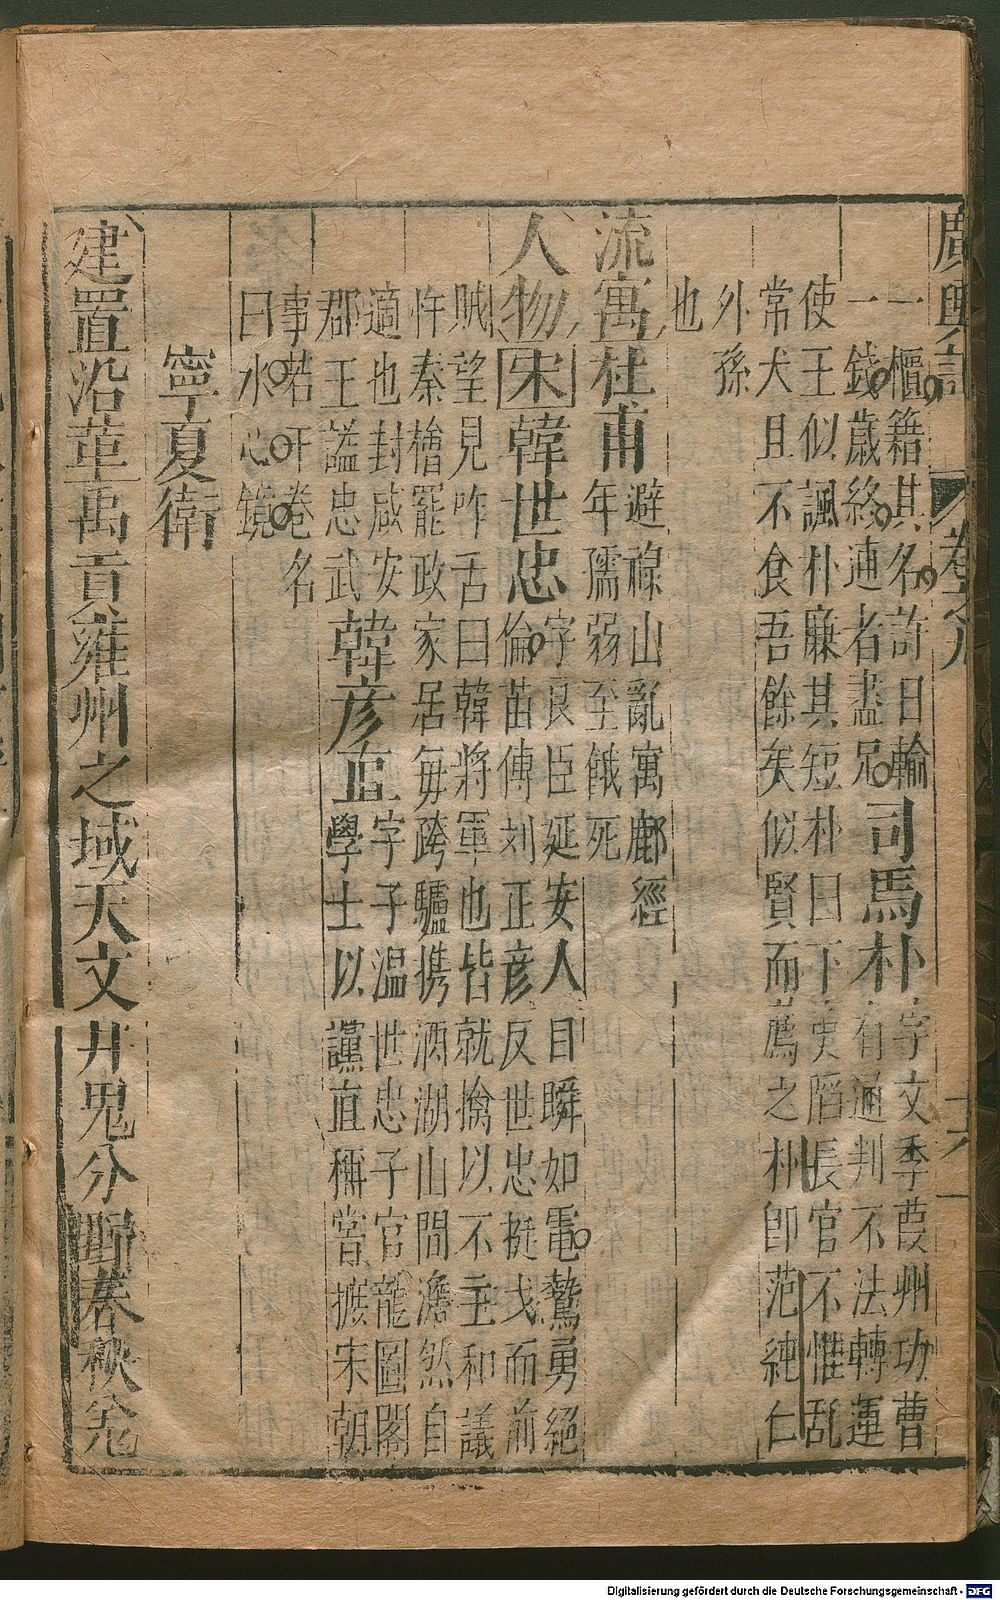 廣輿記 卷之九 六
一櫃籍其名許日輸
一錢歲終逋者盡足
司馬朴
字文季葭州功曹
有通判不法轉運
使王似諷朴廉其短朴曰下吏陷長官不惟亂
常犬且不食吾餘矣似賢而薦之朴卽范純仁
外孫
也
流寓杜甫
避祿山亂寓鄜經
年孺弱至餓死
人物宋韓世忠
字良臣延安人目瞬如電鷙勇絕
倫苗傅刘正彦反世忠挺戈而前
賊望見咋舌曰韓將軍也皆就擒以不主和議
忤秦檜罷政家居毎跨驢携酒湖山間澹然自
適也封咸安
郡王諡忠武
韓彦直
字子温世忠子官龍圖閣
學士以讜直稱嘗摭宋朝
事若干卷名
曰水心鏡
寧夏衛
建置沿革禹貢雍州之域天文井鬼分野春秋羌
Digitalisierung gefördert durch die Deutsche Forschungsgemeinschaft - DFG